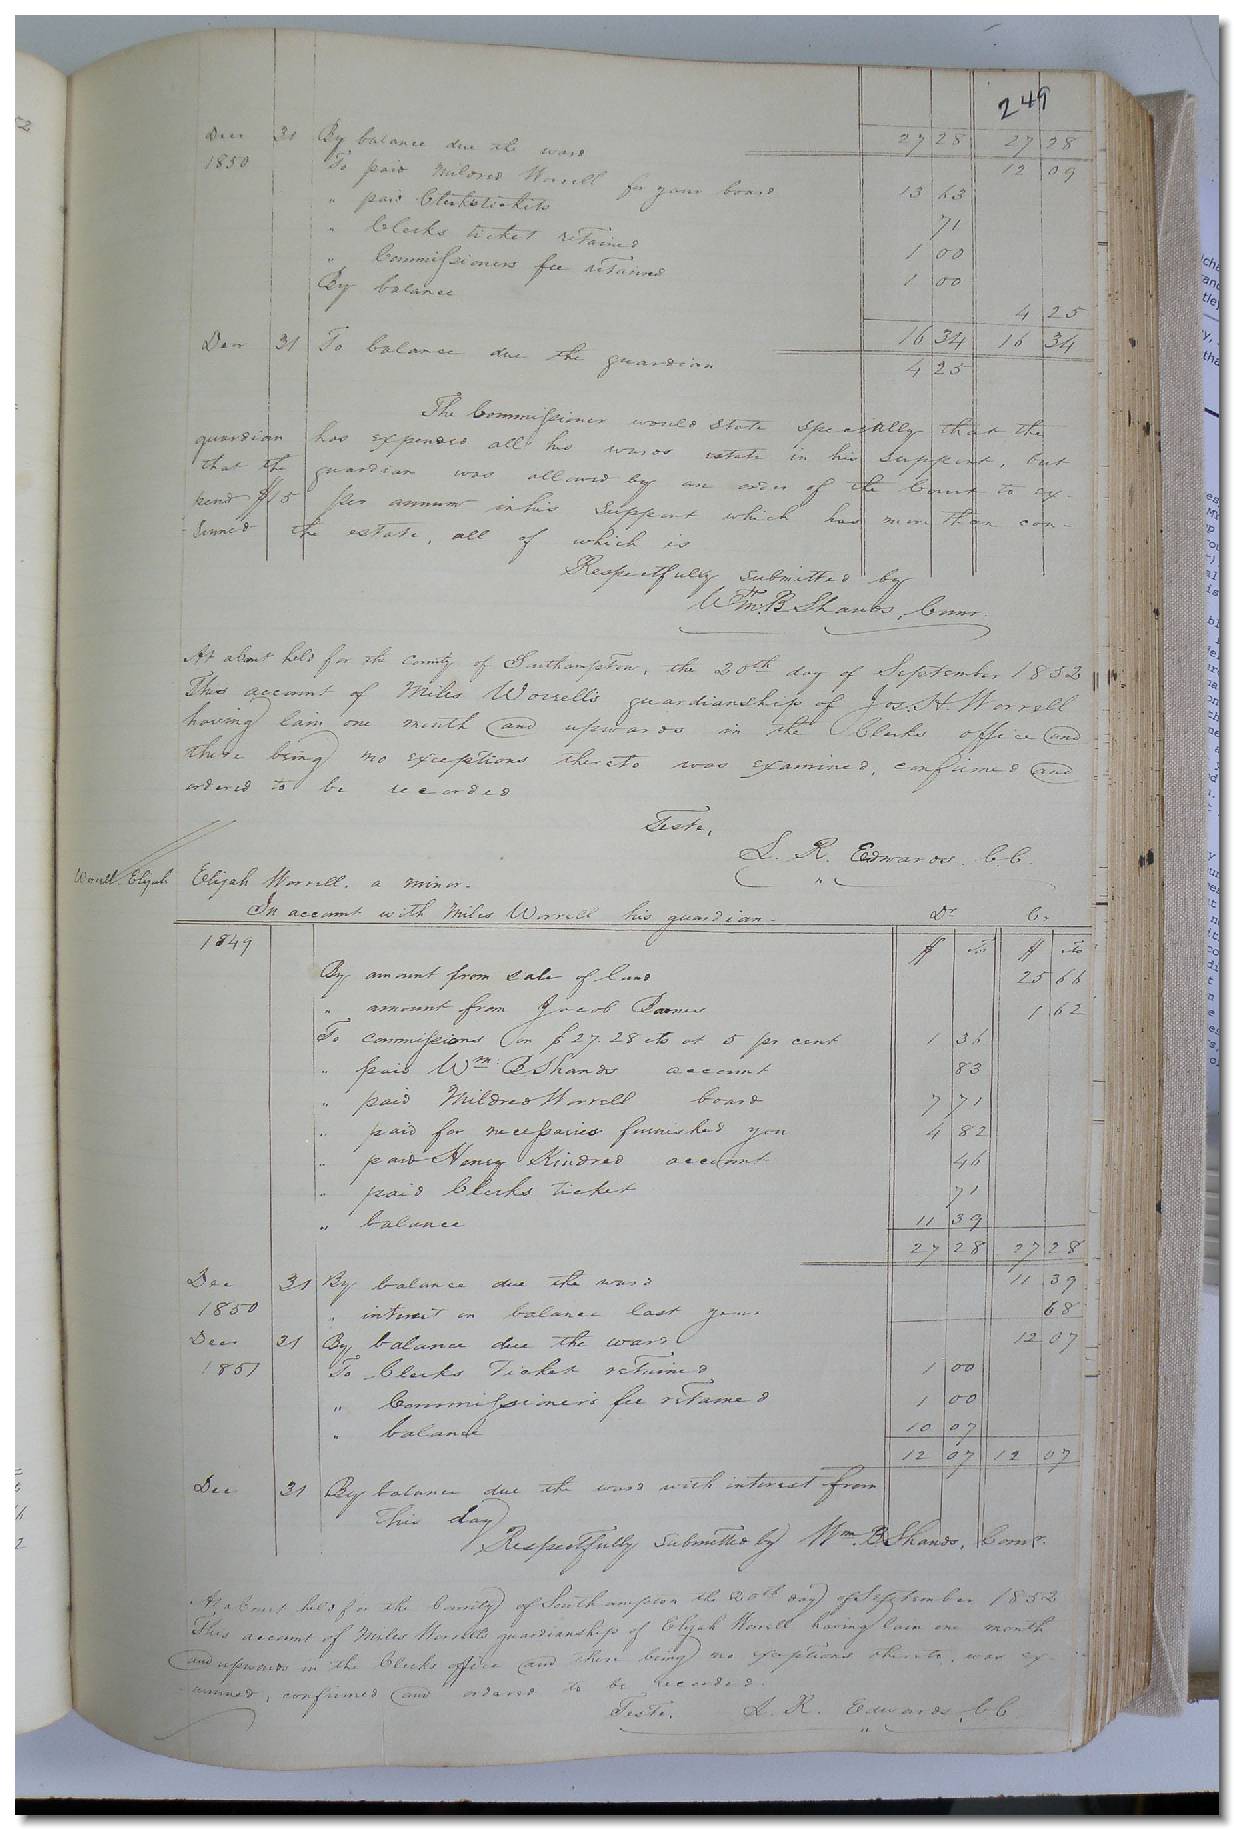 249
27 28 27 28
Decr 31 By balance due the ward 12 09
1850 To paid Mildred Worrell for your board 13 63
" paid Clerks tickets 71
" Clerks ticket retained 1 00
" Commissioners fee retained 1 00
By balance 4 25
16 34 16 34
Decr 31 To balance due the guardian 4 25
The Commissioner would state specially that the
guardian has expended all his wards estate in his support, but
that the guardian was allowed by an order of the Court to ex-
pend $15 per annum in his support which has more than con-
sumed the estate, all of which is
Respectfully submitted by
Wm. B Shands, Comr.
At a Court held for the county of Southampton, the 20th day of September 1852
This account of Miles Worrell's guardianship of Jos. H. Worrell
having lain one month and upwards in the Clerks office and
there being no exceptions thereto was examined, confirmed and
ordered to be recorded
Teste,
L. R. Edwards, CC.
Worrell Elijah
Elijah Worrell, a minor.
In account with Miles Worrell his guardian. Dr Cr
1849 $ cts $ cts
By amount from sale of land 25 66
" amount from Jacob Barnes 1 62
To commissions on $27.28 cts at 5 per cent 1 36
" paid Wm. B Shands account 83
" paid Mildred Worrell board 7 71
" paid for necessaries furnished you 4 82
" paid Henry Kindred account 46
" paid Clerks ticket 71
" balance 11 39
27 28 27 28
Dec 31 By balance due the ward 11 39
1850 " interest on balance last year 68
Decr 31 By balance due the ward 12 07
1851 To Clerks Ticket retained 1 00
" Commissioner's fee retained 1 00
" balance 10 07
12 07 12 07
Dec 31 By balance due the ward with interest from
this day
Respectfully submitted by Wm. B Shands, Comr.
At a Court held for the County of Southampton the 20th day of September 1852
This account of Miles Worrell's guardianship of Elijah Worrell having lain one month
and upwards in the Clerks office and there being no exceptions thereto, was ex-
amined, confirmed and ordered to be recorded.
Teste. L. R. Edwards, CC